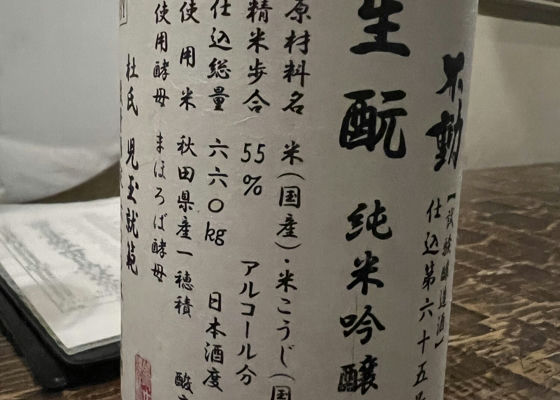 不動
【試験醸造酒】
仕込第六十五号
生酛
純米吟醸
原材料名 米(国産)・米こうじ(国
精米歩合 55% アルコール分
仕込総量 六六〇kg 日本酒度
使用米 秋田県産一穂積 酸度
使用酵母 まほろば酵母
杜氏 児玉就範